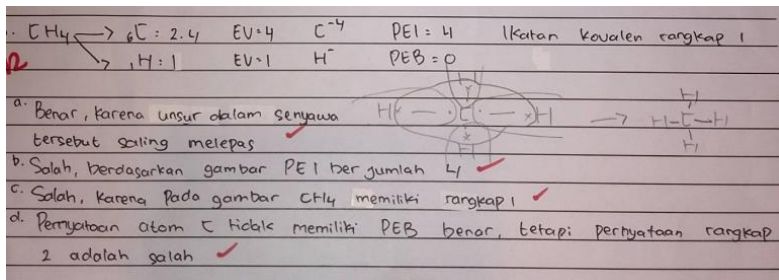 CH4 → 6C : 2.4 EV = 4 C-4 PEI = 4 Ikatan kovalen rangkap 1
1H : 1 EV = 1 H- PEB = 0
a. Benar, karena unsur dalam senyawa
tersebut saling melepas
H C H → H-C-H
H H
H H
b. Salah, berdasarkan gambar PEI berjumlah 4
c. Salah, karena pada gambar CH4 memiliki rangkap 1
d. Pernyataan atom C tidak memiliki PEB benar, tetapi pernyataan rangkap
2 adalah salah